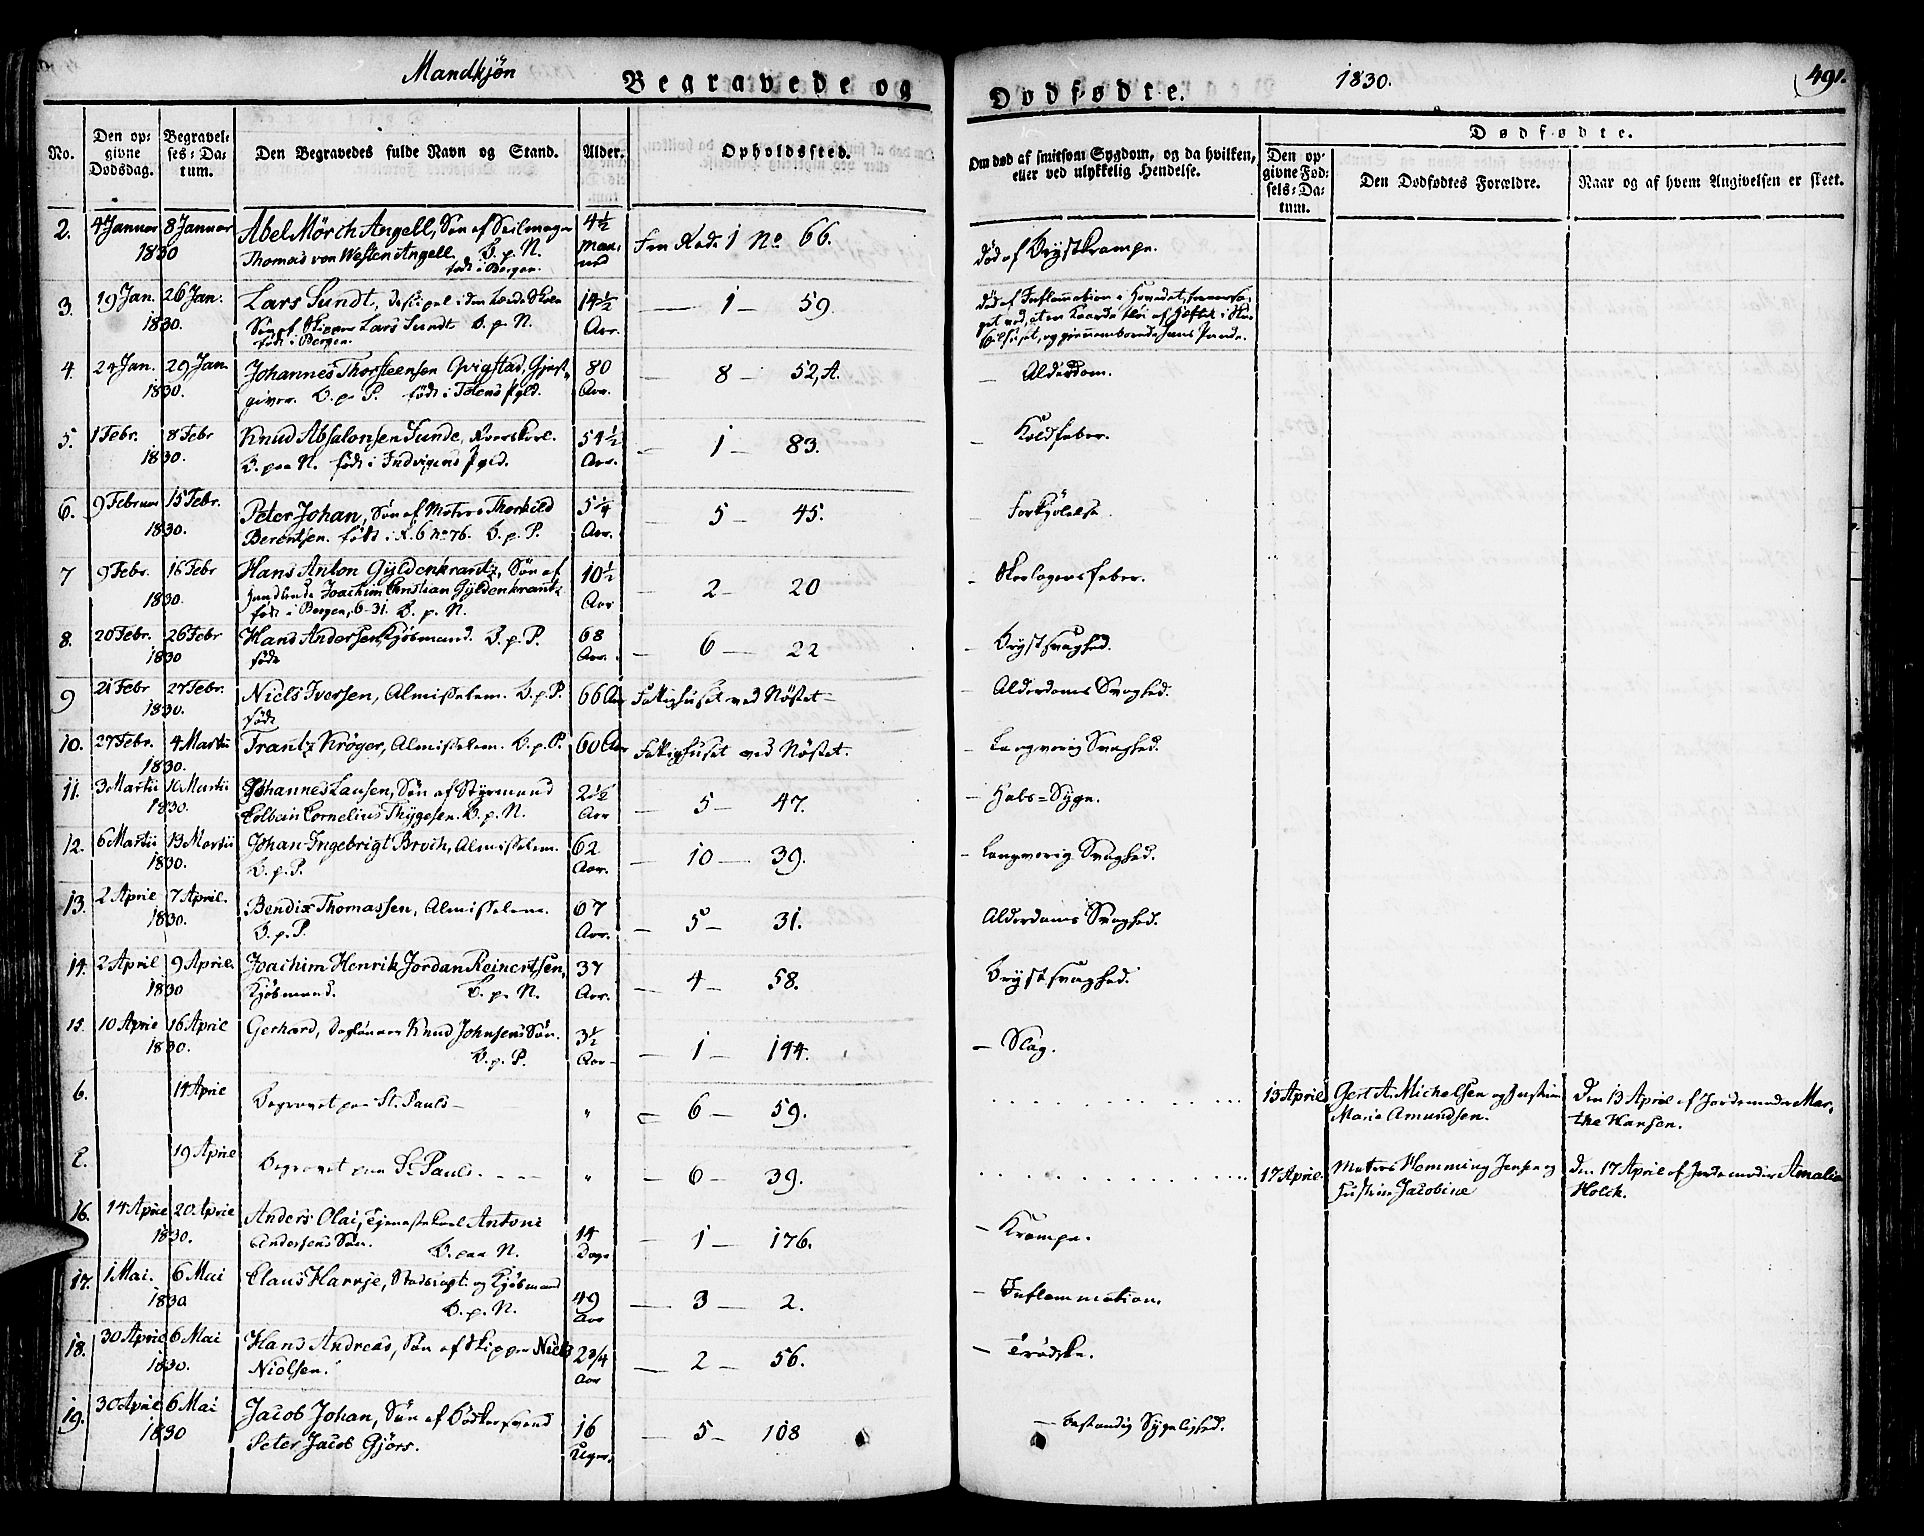 Mandkjøn
Begravede og
Dødfødte.
1830.
491.
No.
Den opgivne Dødsdag.
Begravelses-Datum.
Den Begravedes fulde Navn og Stand.
Alder.
Opholdssted.
Om død af smitsom Sygdom, og da hvilken, eller ved ulykkelig Hendelse.
Dødfødte.
Den opgivne Fødsels-Datum.
Den Dødfødtes Forældre.
Naar og af hvem Angivelsen er skeet.
2. 4 Januar 8 Januar Abel Mörch Angell, Søn af Seilmager 4½ No 66. død af Brystkrampe.
1830 Thomas von Westen Angell. B. p. N.
født i Bergen.
3. 19 Jan. 26 Jan. Lars Sundt, 14½ — 1 59. død af Inflammation i Hovedet,
1830. Søn af Skipper Lars Sundt B. p. N. Aar.
født i Bergen.
4. 24 Jan. 29 Jan. Johannes Thorsteensen Qvigstad, Gjest- 80 — 8 — 52, A. — Alderdom.
1830. giver. B. p. P. født i Totens Pgld. Aar.
5. 1 Febr. 8 Febr Knud Absalonsen Sunde, 54½ — 1 — 83. — Koldfeber.
1830. B. paa N. født i Indvigens Pgld. Aar.
6. 9 Februar 15 Febr. Peter Johan, Søn af Matros Thorkild 5¼ — 5 — 45. — Forkjølelse.
1830. Berentsen. født i R. 6 No 76. B. p. P. Aar.
7 9 Febr. 16 Febr Hans Anton Gyldenkrantz, Søn af 10½ — 2 — 20 — Skarlagensfeber.
1830. Joachim Christian Gyldenkrantz Aar
født i Bergen, 6-31. B. p. N.
8. 20 Febr. 26 Febr Hans Andersen, Kjøbmand. B. p. P. 68 — 6 — 22 — Brystsvaghed.
1830 født Aar.
9 21 Febr 27 Febr. Niels Iversen, Almisselem. B. p. P. 66 Aar Fattighuset ved Nøstet — — Alderdoms Svaghed.
1830. født
10. 27 Febr. 4 Martii Frantz Krøger, Almisselem. B. p. P. 60 Aar Fattighuset ved Nøstet. — Langvarig Svaghed.
1830.
11. 3 Martii 10 Martii Johannes Lausen, Søn af Styrmand 2½ — 5 — 47. — Hals-Syge.
1830. Colbein Cornelius Thygesen. B. p. N. Aar
12. 6 Martii 13 Martii Johan Ingebrigt Broch, Almisselem. 62 — 10 — 39. — Langvarig Svaghed.
1830. B. p. P. Aar.
13. 2 April 7 April. Bendix Thomassen, Almisselem. 67 — 5 — 31. Alderdoms Svaghed.
1830. B. p. P. Aar.
14. 2 April 9 April. Joachim Henrik Jordan Reinertsen, 37 — 4 — 58. Brystsvaghed.
1830 Kjøbmand. B. p. N. Aar.
15. 10 April 16 April Gerhard, Dagleier Knud Johnsens Søn. 3½ — 1 — 144. — Slag.
1830. B. p. P. Aar
14 April Begravet paa St. Pauls — " 6 — 59. 13 April Gert A. Michelsen og Justine Den 13 April af Jordemoder Mar-
Marie Amundsen. the Hansen.
19 April Begravet paa St. Pauls. " — 6 — 39. 17 April. Matros Hemming Jensen og Den 17 April af Jordemoder Amalia
Justine Jacobine Holck.
16. 14 April 20 April Anders Olai, Tjenestekarl Antoni 14 — 1 — 176. — Krampe.
1830. Andersens Søn. B. paa N. Dage
17. 1 Mai. 6 Mai Claus Harrje, Stadscapt. og Kjøbmand 49 — 3 — 2. — Inflammation.
1830 B. p. N. Aar
18. 30 April 6 Mai Hans Andreas, Søn af Skipper Niels 2 3/4 — 2 — 56. — Trødske.
1830. Nielsen. Aar
19. 30 April 6 Mai Jacob Johan, Søn af Bødkersvend 16 — 5 — 108 — bestandig Sygelighed.
1830 Peter Jacob Gjørs. Uger.